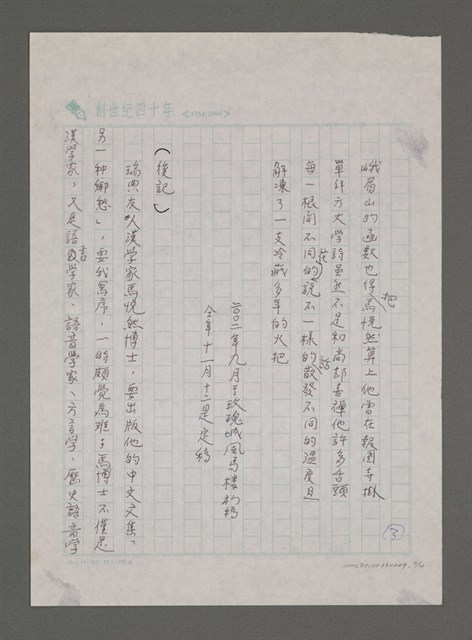 創世紀四十年 <1954-1994>
峨眉山的函數也得把馬悅然算上他曾在報國寺掛
單雖然不是和尚卻喜禪他許多舌頭
每一根開不同的花說不一樣的話散發不同的溫度且
解凍了一支冷藏多年的火把
二〇〇二年九月于玫瑰城風馬樓初稿
今年十一月十二是定稿
（後記）
瑞典友人漢學家馬悅然博士，要出版他的中文文集、
另一种鄉愁」，要我寫序，一時頗覺為難，馬博士不僅是
漢學家，又是語言學家、語音學家、方言學，歷史語音學
3